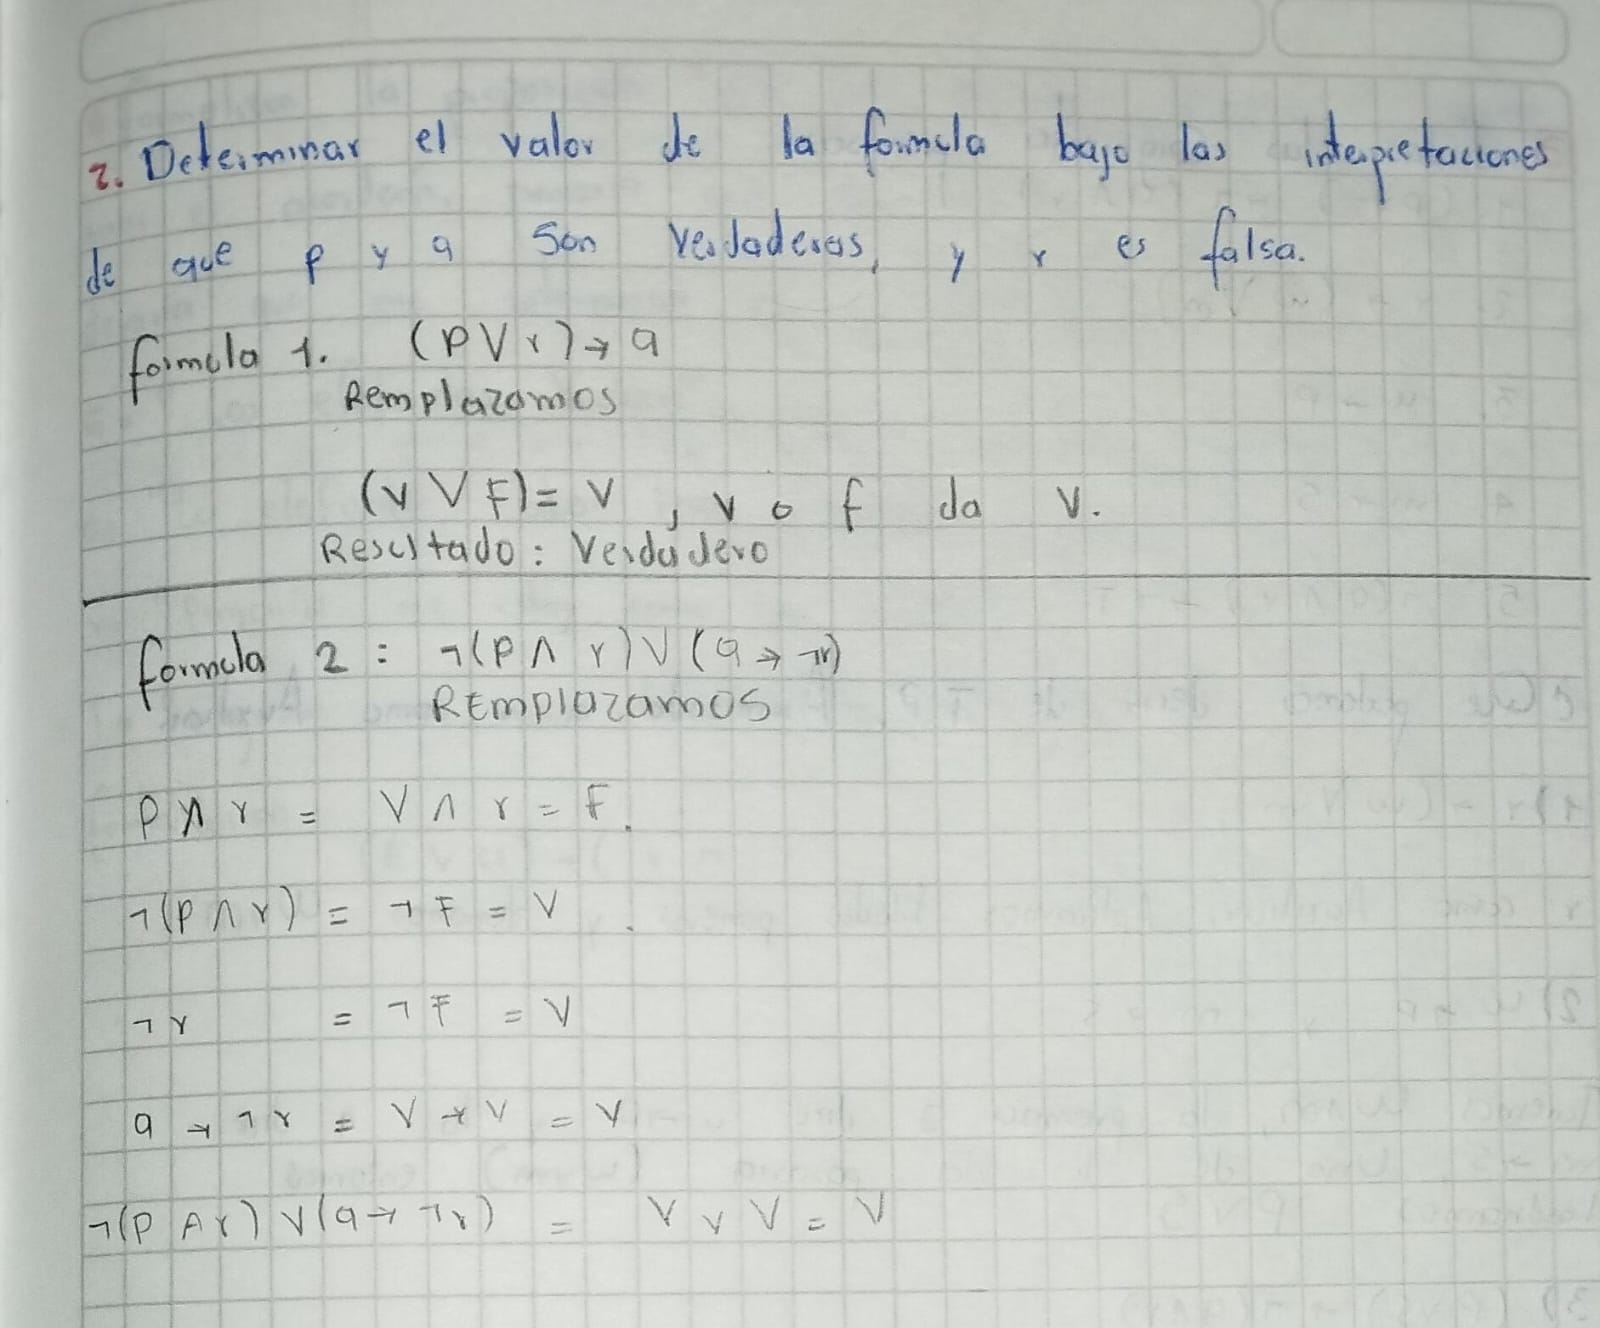 2. Determinar el valor de la formula bajo las interpretaciones
de que p y q son verdaderas, y r es falsa.
formula 1. (p ∨ r) → q
Remplazamos
(v ∨ F) = V , v o f da V.
Resultado: Verdadero
formula 2 : ¬(p ∧ r) ∨ (q → ¬r)
REmplazamos
p ∧ r = V ∧ r = F.
¬(p ∧ r) = ¬F = V .
¬r = ¬F = V
q → ¬r = V → V = V
¬(p ∧ r) ∨ (q → ¬r) = V ∨ V = V